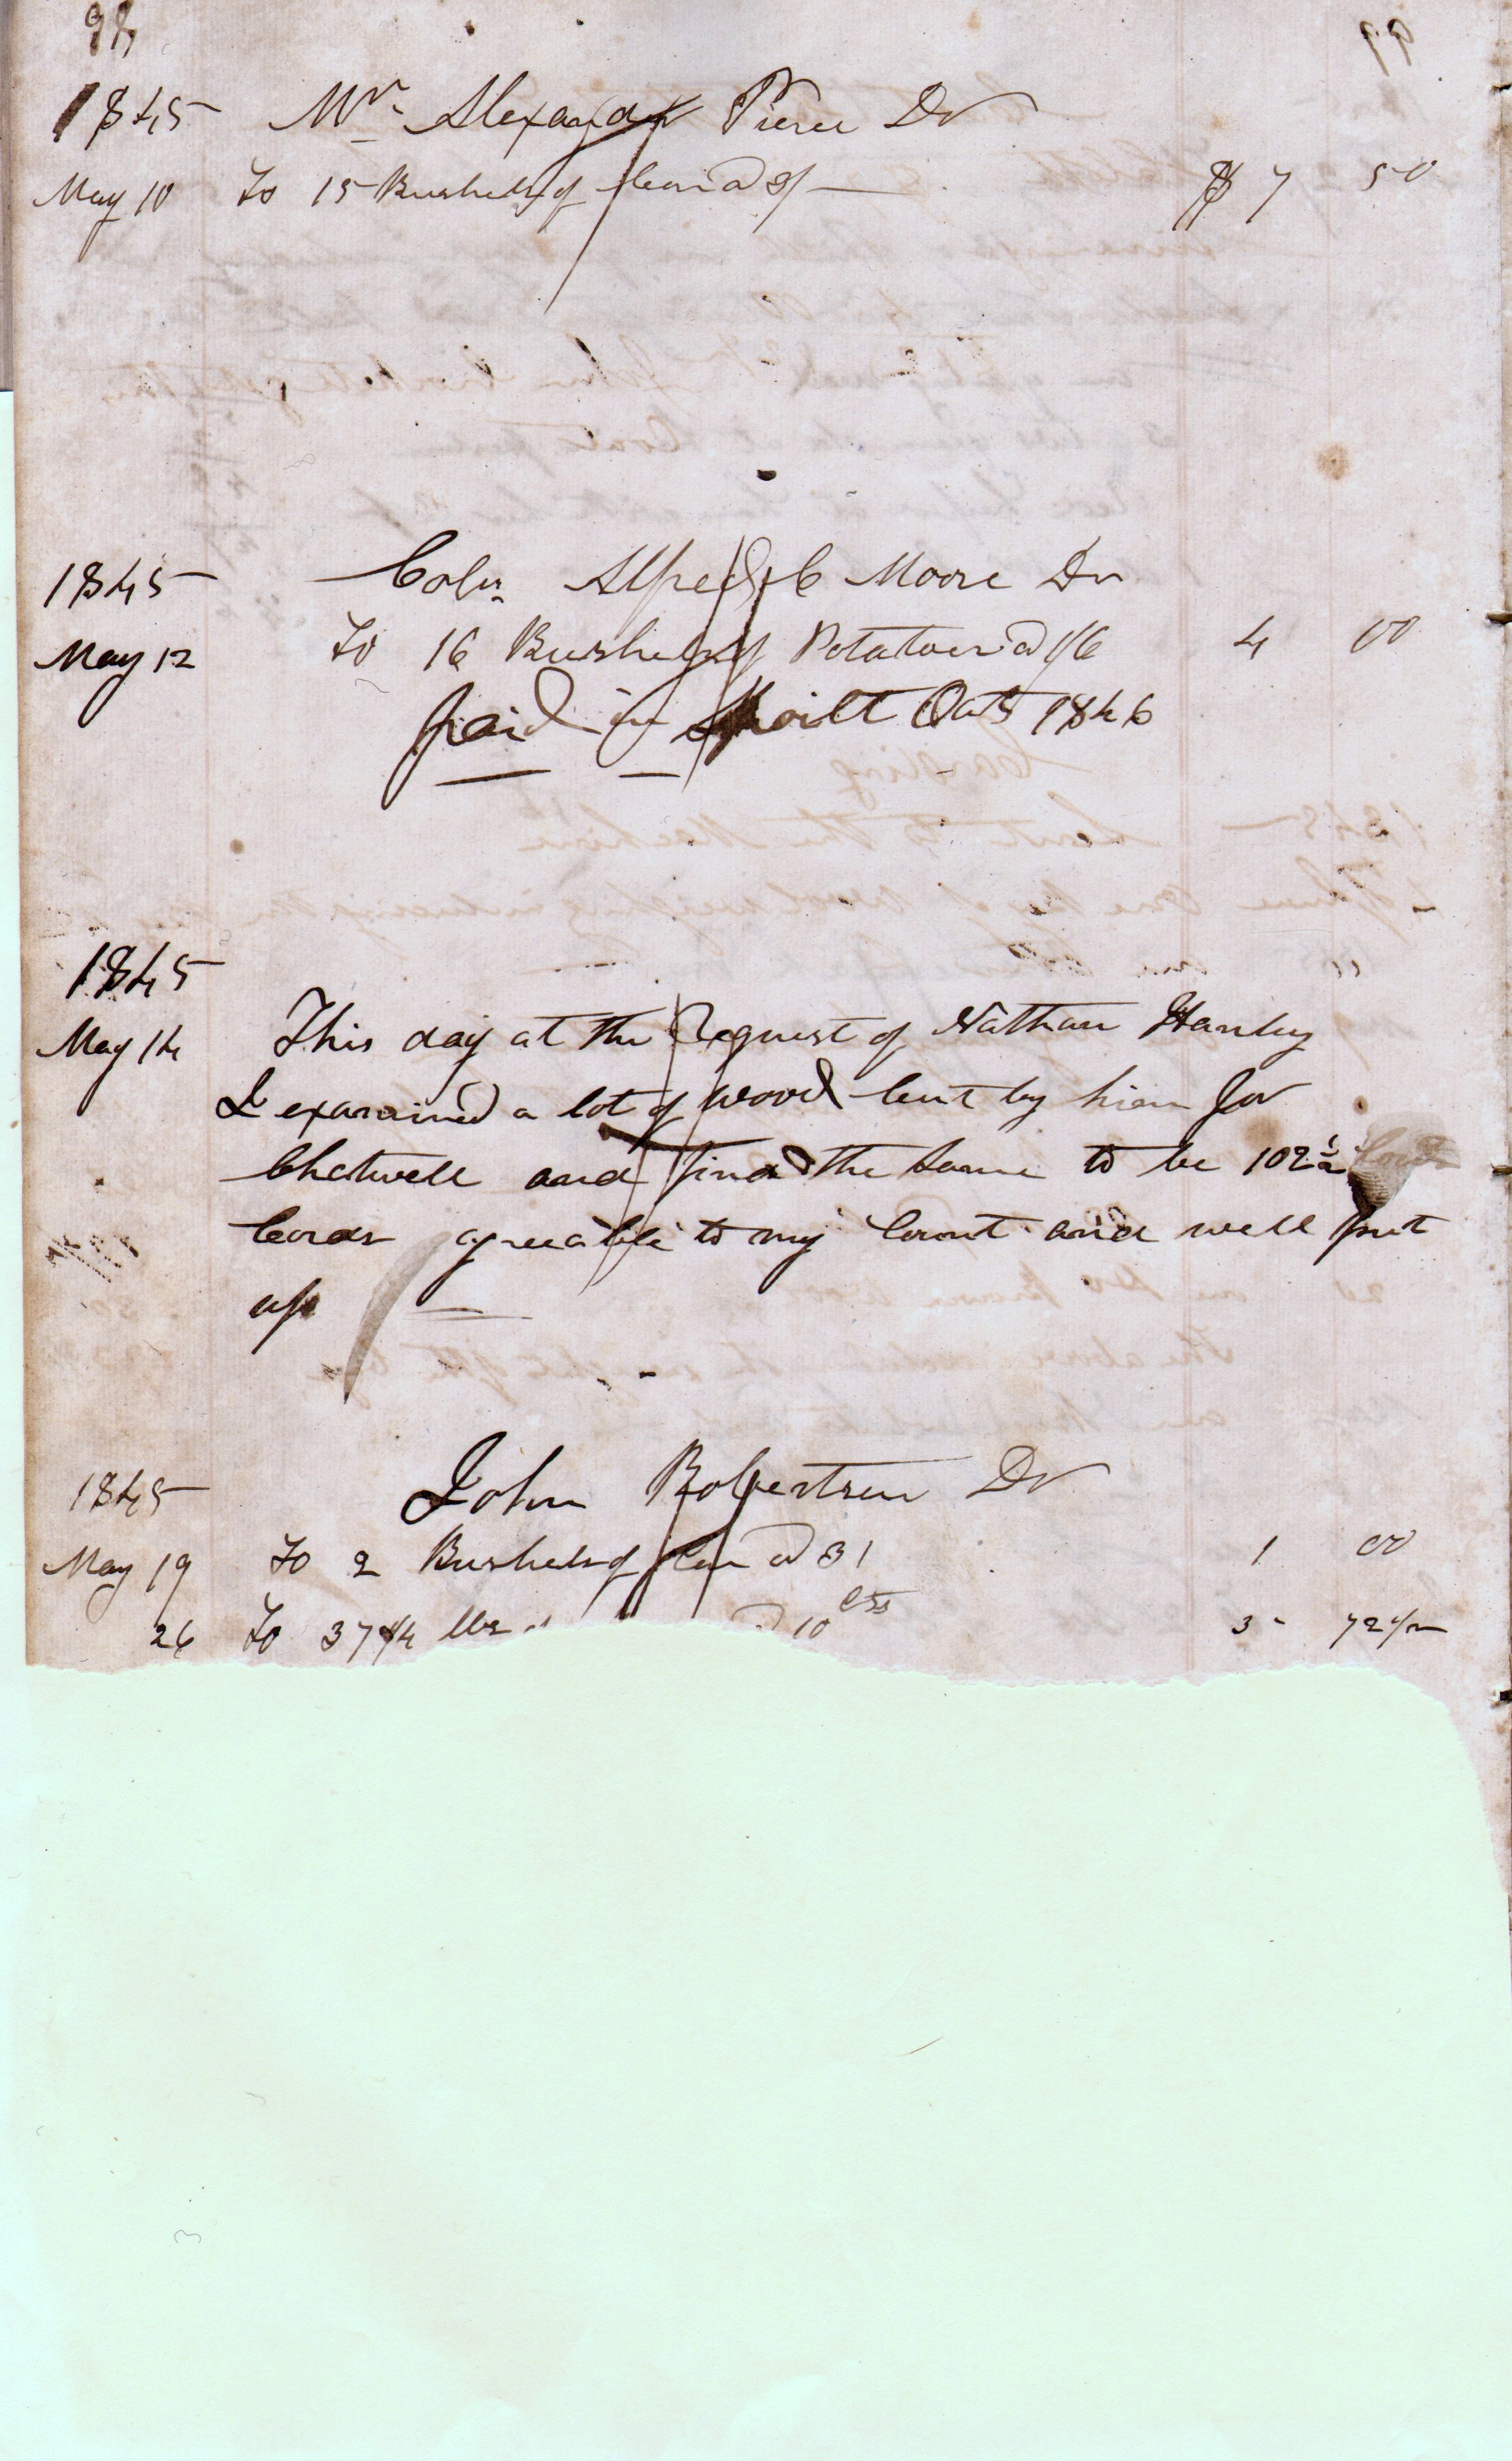 98
1845 Mr. Alexander Pierce Dr
May 10 To 15 Bushels of Corn @ 3/ $ 7 50
1845 Coln. Alfred C Moore Dr
May 12 To 16 Bushels of Potatoes @ 1/6 4 00
paid in Spoilt Oats 1846
1845
May 14 This day at the Request of Nathan Hanley
I examined a lot of wood Cut by him for
Chatwell and find the same to be 102 1/2
Cords agreeable to my Count and well put
up
1845 John Robertson Dr
May 19 To 2 Bushels of Corn @ 3/ 1 00
26 To 37 1/4 lbs @ 10 cts 3 - 72 1/2